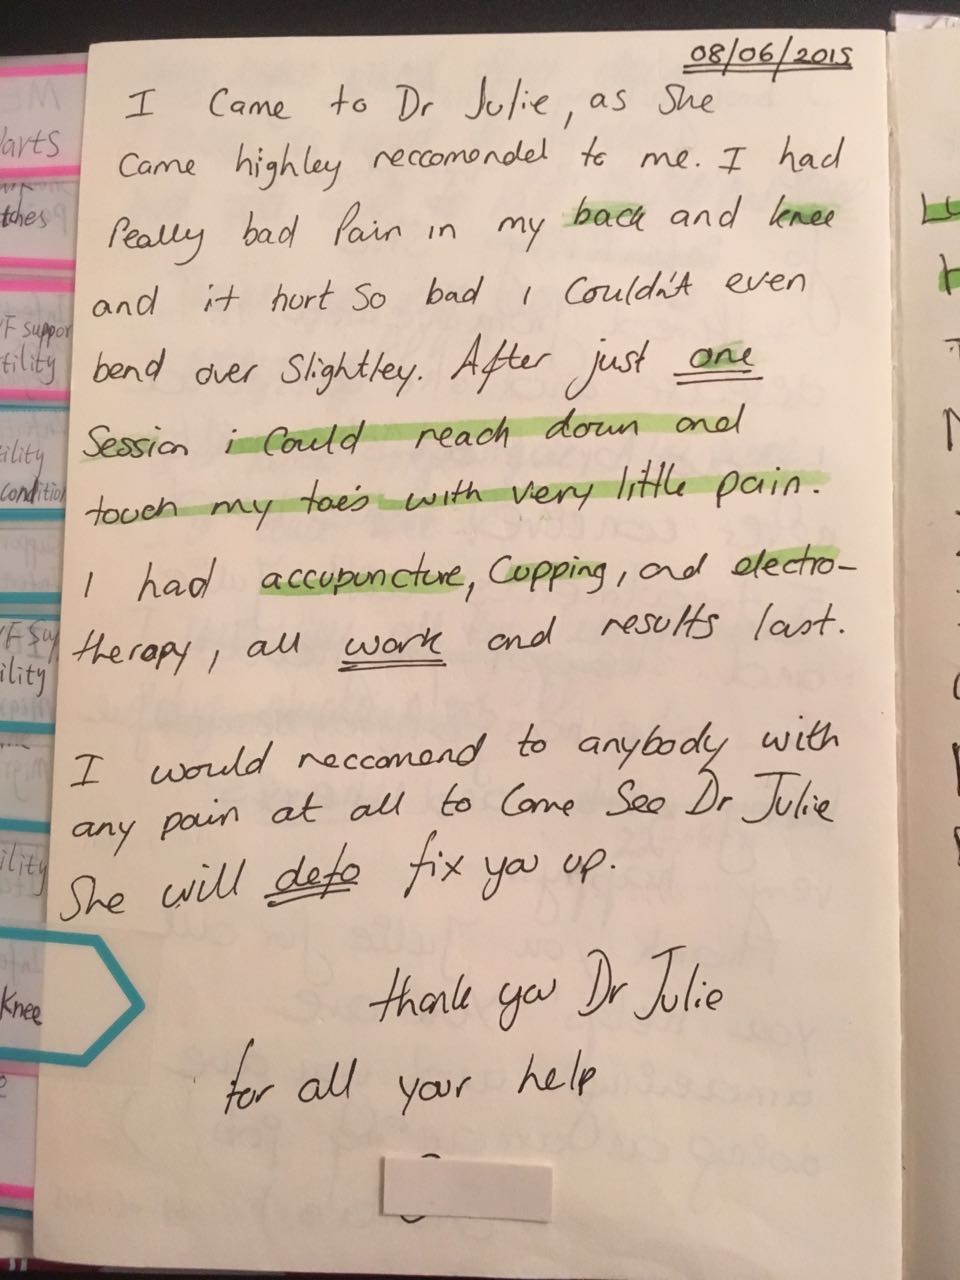 08/06/2015
I came to Dr Julie, as she
came highley reccomondel to me. I had
Really bad Pain in my back and knee
and it hurt so bad i couldn't even
bend over slightley. After just one
Session i could reach down and
touch my toe's with very little pain.
I had accupuncture, Cupping, and electro-
therapy, all work and results last.
I would reccomend to anybody with
any pain at all to come see Dr Julie
She will defo fix you up.
thank you Dr Julie
for all your help
arts
tches
F suppor
tility
ility
condition
F Sup
ility
ility
Knee